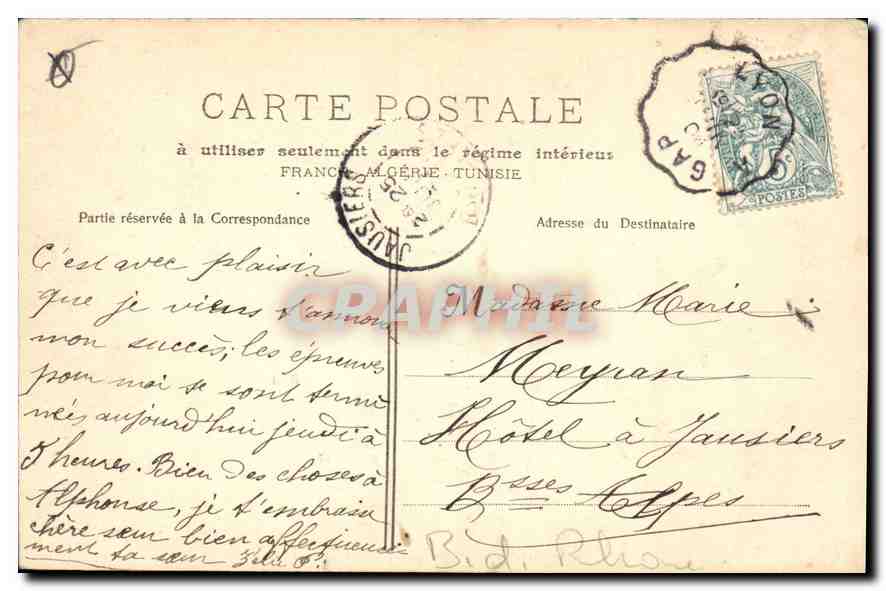 CARTE POSTALE
à utiliser seulement dans le régime intérieur
FRANCE - ALGÉRIE - TUNISIE
Partie réservée à la Correspondance
Adresse du Destinataire
C'est avec plaisir
que je viens t'annonc
mon succès; les épreuves
pour moi se sont termi
nées aujourd'hui jeudi à
5 heures. Bien des choses à
Alphonse, je t'embrasse
chère sœur bien affectueuse
ment ta sœur
Madame Marie
Meyran
Hôtel à Jausiers
Bsses Alpes
B. d. Rhone
JAUSIERS
25
LYON
GAP
5c
POSTES
CRAPHIL